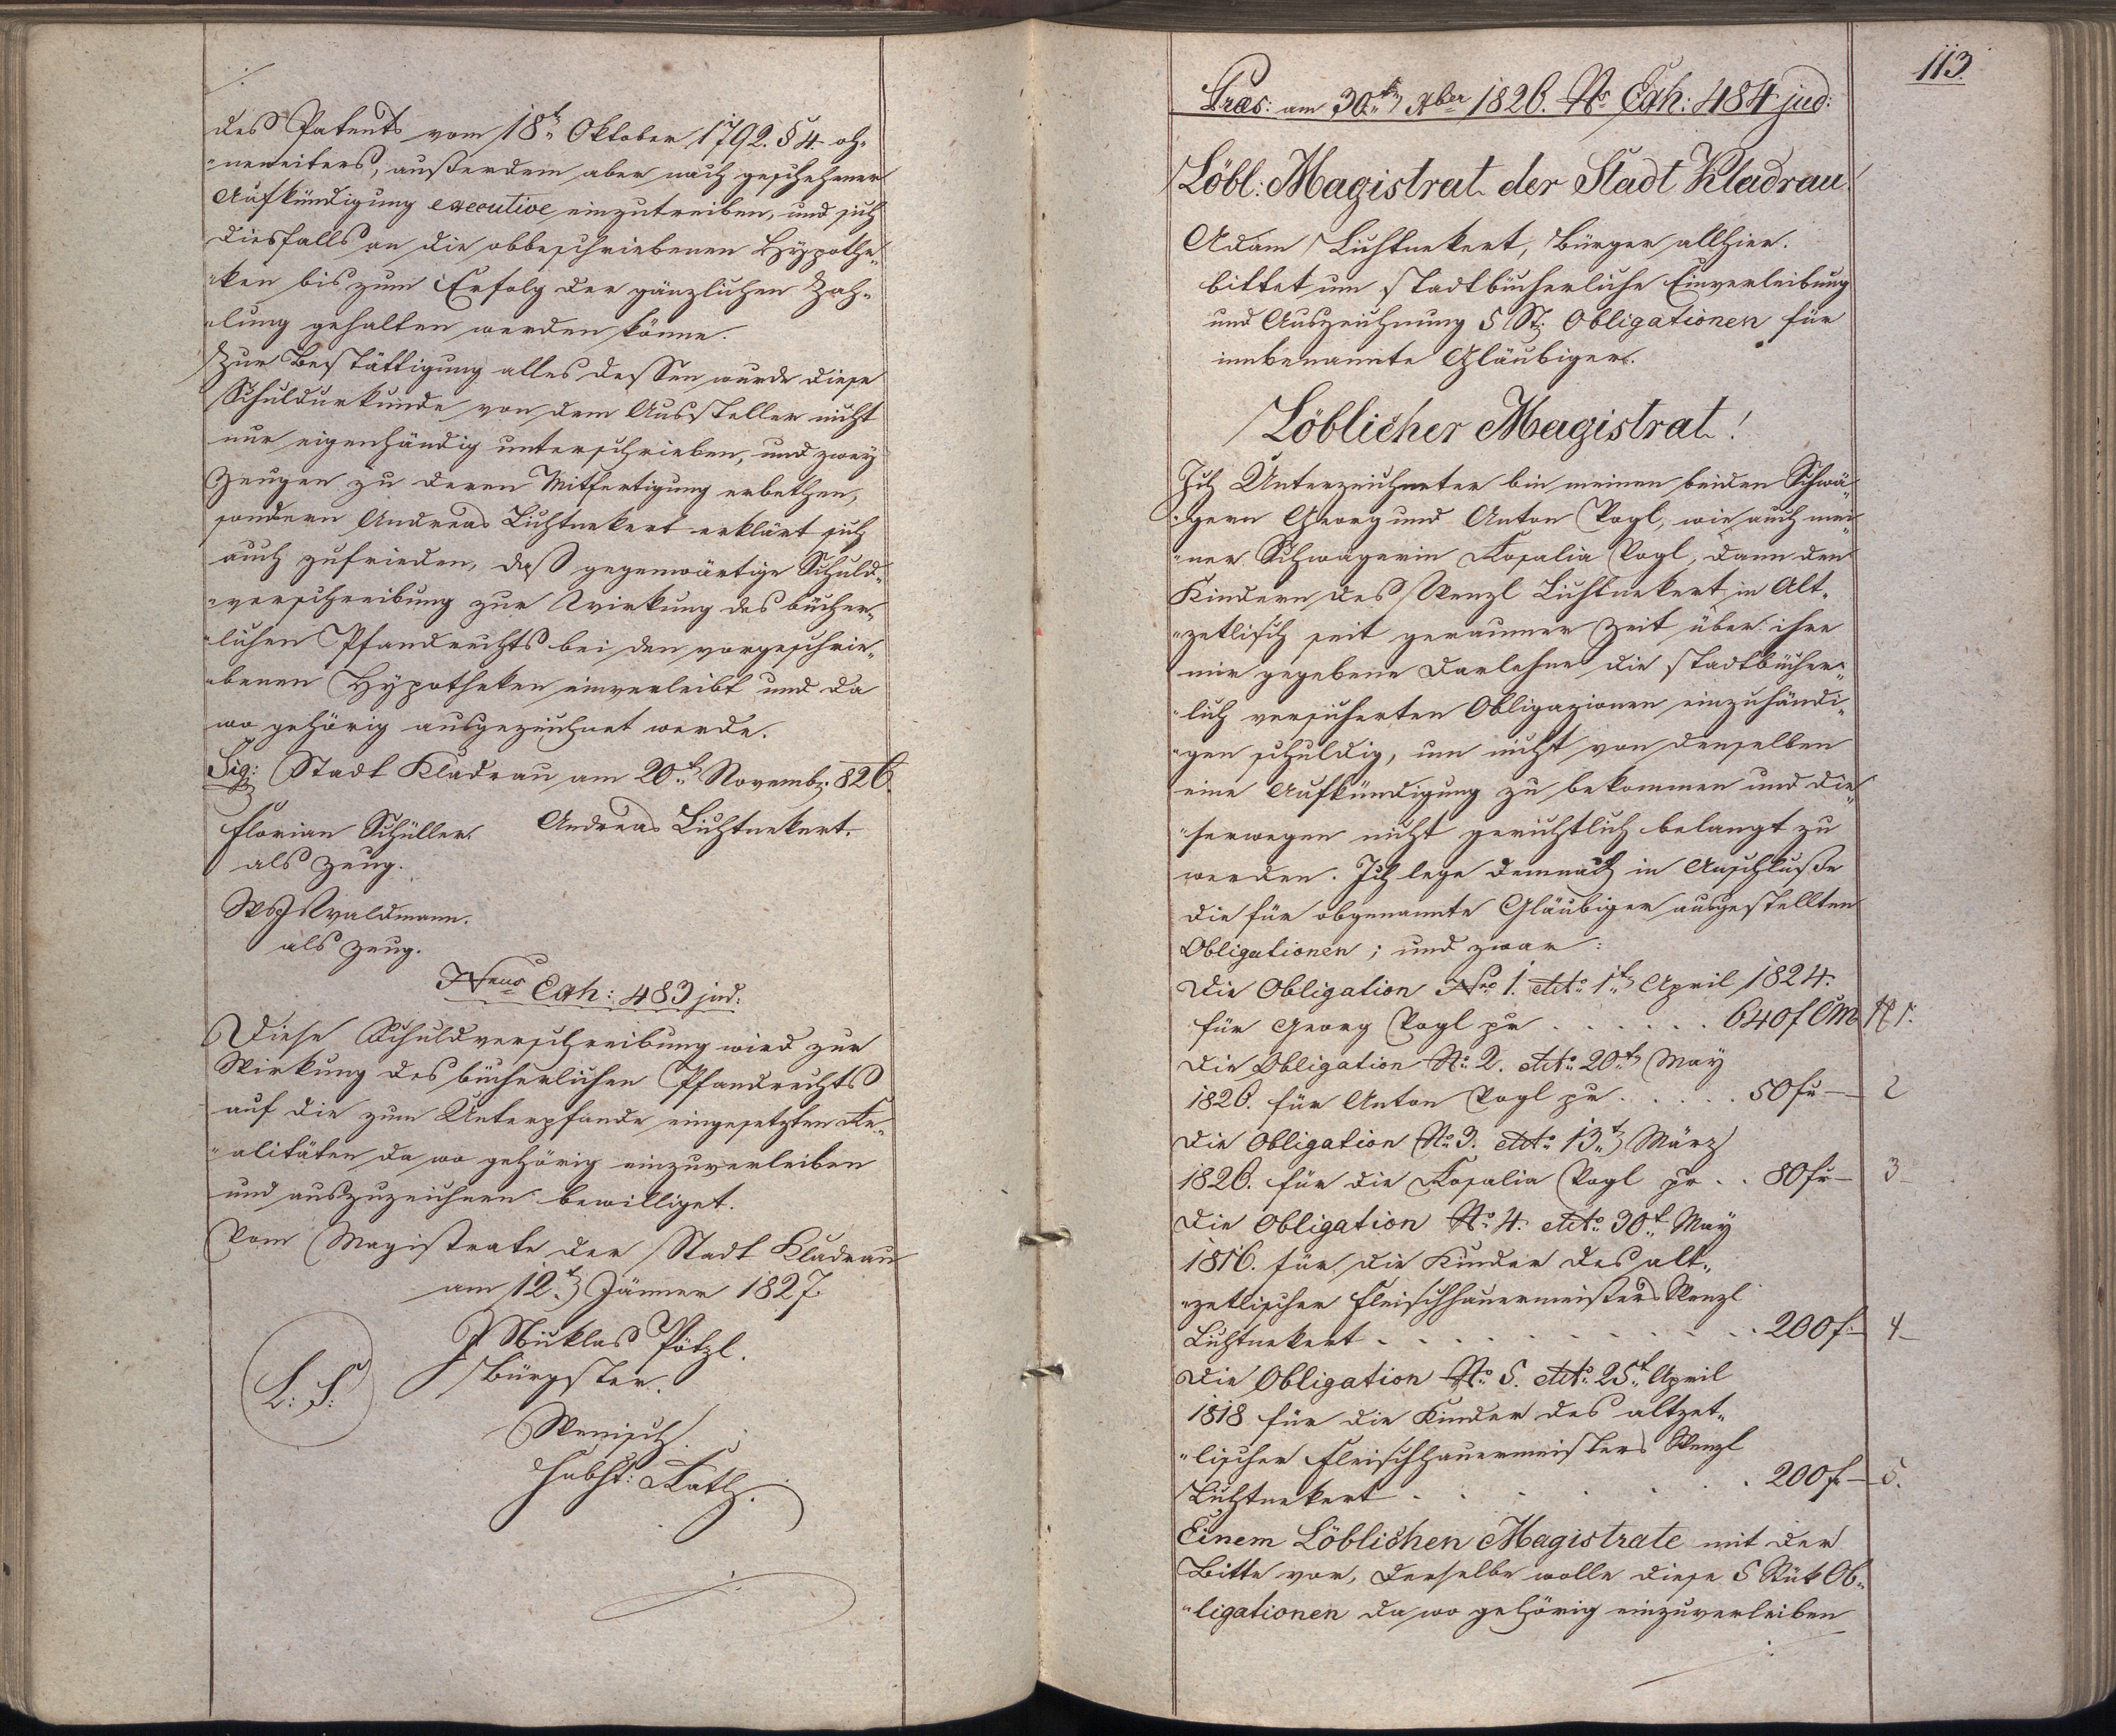 des Patents vom 18t Oktober 1792. § 4. oh„
„neweiters, außerdem aber nach geschehener
Aufkündigung executive einzutreiben, und sich
diesfalls an die obbeschriebenen Hypothe„
„ken bis zum Erfolg der gänzlichen Zah„
„lung gehalten werden könne.
Zur Bestättigung alles dessen wurde diese
Schuldurkunde von dem Aussteller nicht
nur eigenhändig unterschrieben, und zwey
Zeugen zu deren Mitfertigung erbethen,
sondern Andreas Lichtnekert erklärt sich
auch zufrieden, daß gegenwärtige Schuld„
„verschreibung zur Wirkung des bücher„
„lichen Pfandrechts bei den vorgeschrie„
„benen Hypotheken einverleibt und da
wo gehörig ausgezeichnet werde.
Sig: Stadt Kladrau am 20t Novemb: 826.
Florian Schüller. Andreas Lichtnekert.
als Zeug.
Waldmann.
als Zeug.
Nrus Exh: 483 jud:
Diese Schuldverschreibung wird zur
Wirkung des bücherlichen Pfandrechts
auf die zum Unterpfande eingesetzten Re„
„alitäten da wo gehörig einzuverleiben
und auszuzeichnen bewilliget.
Vom Magistrate der Stadt Kladrau
am 12t Jänner 1827.
Niklas Pötzl.
Bürgster.
L: S:
Wenisch
Rath.
113.
Præs: am 30t Xber 1826. No Exh: 484 jud:
Löbl: Magistrat der Stadt Kladrau!
Adam Lichtnekert, Bürger allhier.
bittet um stadtbücherliche Einverleibung
und Auszeichnung 5 St: Obligationen für
innbenannte Gläubiger.
Löblicher Magistrat!
Ich Unterzeichneter bin meinen beiden Schwä„
„gern Georg und Anton Vogl, wie auch mei„
„ner Schwägerin Rosalia Vogl, dann den
Kindern des Wenzl Lichtnekert in Alt„
„zetlisch seit geraumer Zeit über ihre
mir gegebene Darlehne die stadtbücher„
„lich versicherten Obligazionen einzuhändi„
„gen schuldig, um nicht von denselben
eine Aufkündigung zu bekommen und die„
„serwegen nicht gerichtlich belangt zu
werden. Ich lege demnach in Anschluße
die für obgenannte Gläubiger ausgestellten
Obligationen; und zwar:
Die Obligation Nro 1. dto 1t April 1824.
für Georg Vogl pr . . . . . . 640f CM No 1.
Die Obligation No 2. dto 20t May
1826. für Anton Vogl pr . . . . . 50f — 2
Die Obligation No 3. dto 13t März
1826. für die Rosalia Vogl pr . . 80f — 3
Die Obligation No 4. dto 30t May
1816. für die Kinder des alt„
„zetlischer Fleischhauermeisters Wenzl
Lichtnekert . . . . . . . . . 200f — 4
Die Obligation No 5. dto 25t April
1818 für die Kinder des altzet„
„lischer Fleischhauermeisters Wenzl
Lichtnekert . . . . . . . 200f — 5.
Einem Löblichen Magistrate mit der
Bitte vor, derselbe wolle diese 5 Stük Ob„
„ligationen da wo gehörig einzuverleiben